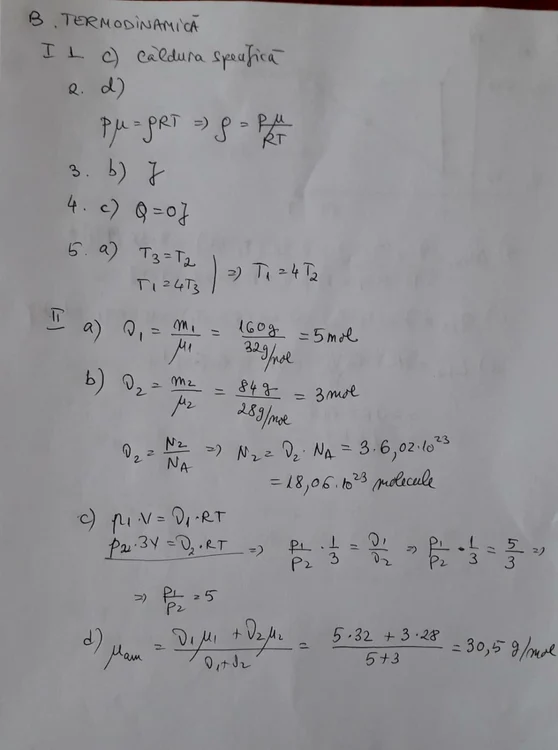 B. TERMODINAMICĂ
I 1 c) Căldura specifică
2. d)
pμ = ρRT => ρ = pμ/RT
3. b) J
4. c) Q = 0J
5. a) T3 = T2
T1 = 4T3 | => T1 = 4T2
II a) υ1 = m1/μ1 = 160g/32g/mol = 5mol
b) υ2 = m2/μ2 = 84g/28g/mol = 3mol
υ2 = N2/NA => N2 = υ2 · NA = 3·6,02·10²³
= 18,06·10²³ molecule
c) p1·V = υ1·RT
p2·3V = υ2·RT => p1/p2 · 1/3 = υ1/υ2 => p1/p2 · 1/3 = 5/3 =>
=> p1/p2 = 5
d) μam = υ1μ1 + υ2μ2/υ1+υ2 = 5·32 + 3·28/5+3 = 30,5 g/mol